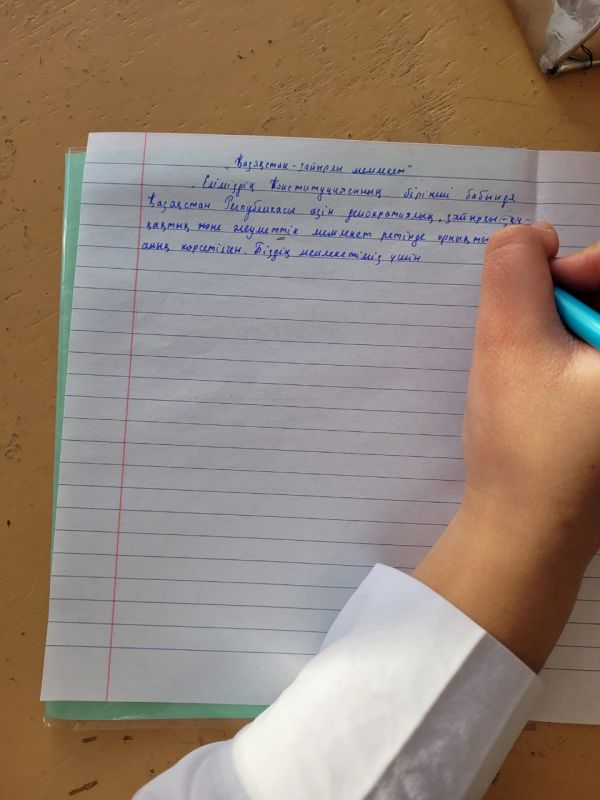 "Қазақстан - зайырлы мемлекет"
Еліміздің Конституциясының бірінші бабында
Қазақстан Республикасы өзін демократиялық, зайырлы, құ-
қықтық және әлеуметтік мемлекет ретінде орнықты
анық көрсетілген. Біздің мемлекетіміз үшін